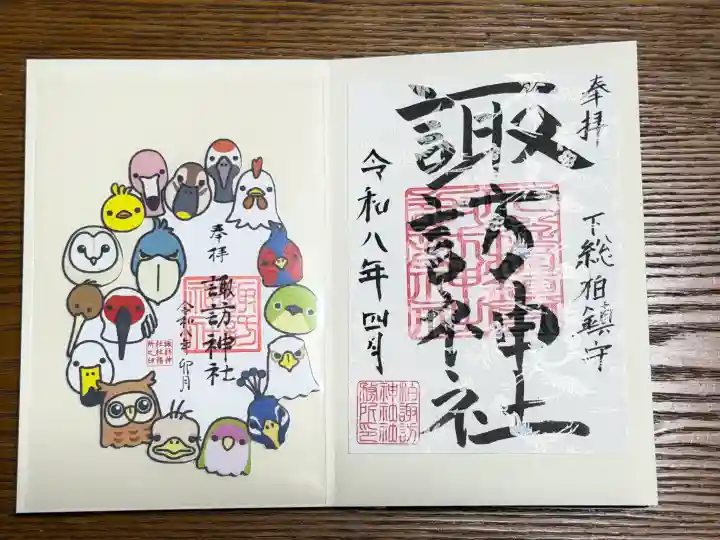 奉拝
諏訪神社
令和八年 卯月
諏訪神
社社務
所之印
奉拝
下総柏鎮守
諏訪神社
令和八年四月
柏諏訪
神社社
務所印